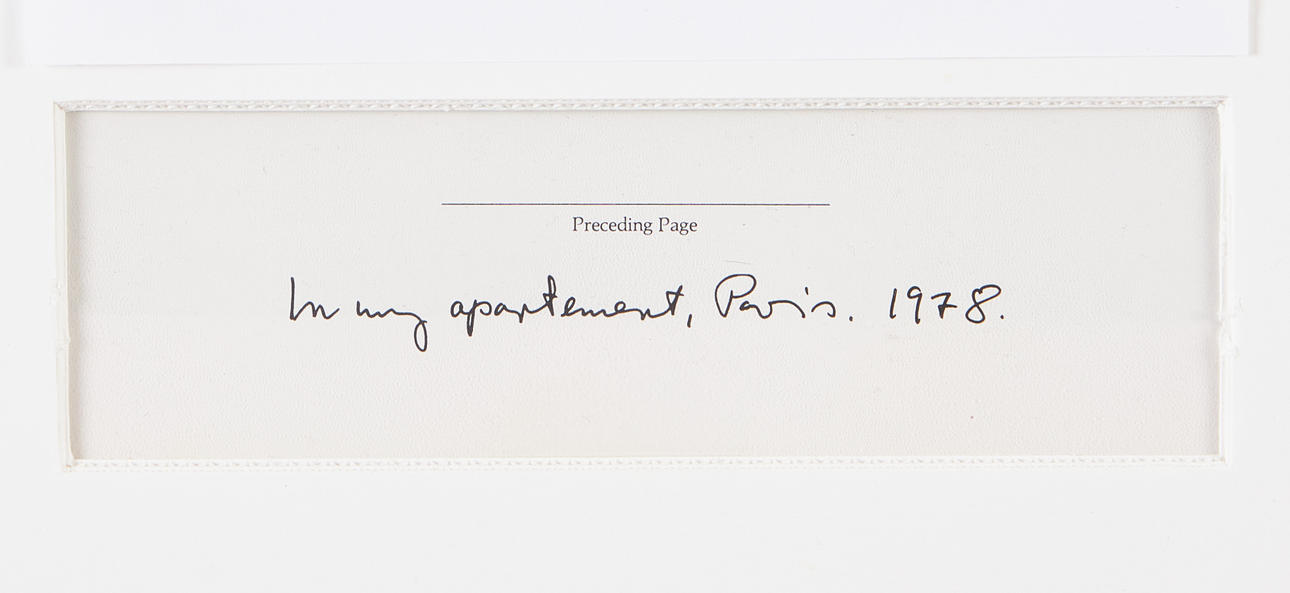 Preceding Page
In my apartement, Paris. 1978.